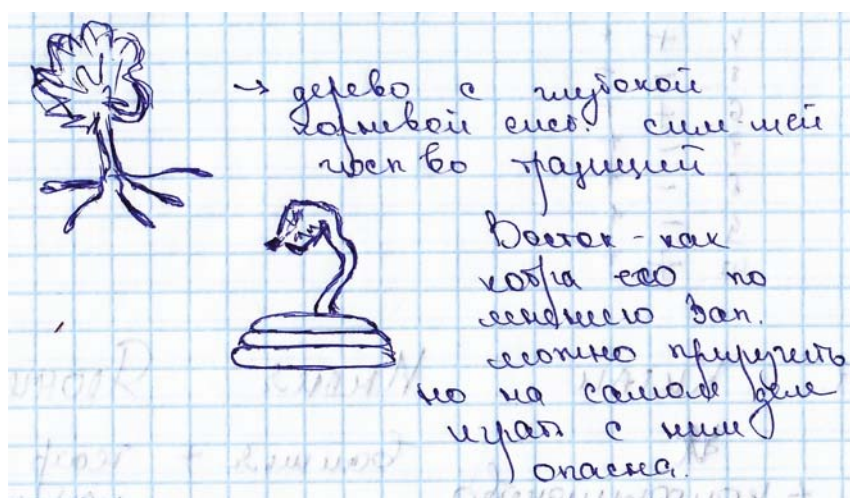 → дерево с глубокой
корневой сист. сим-щей
госп во традиций
Восток - как
кобра его по
мнению Зап.
можно приручить
но на самом деле
играть с ним
опасна.